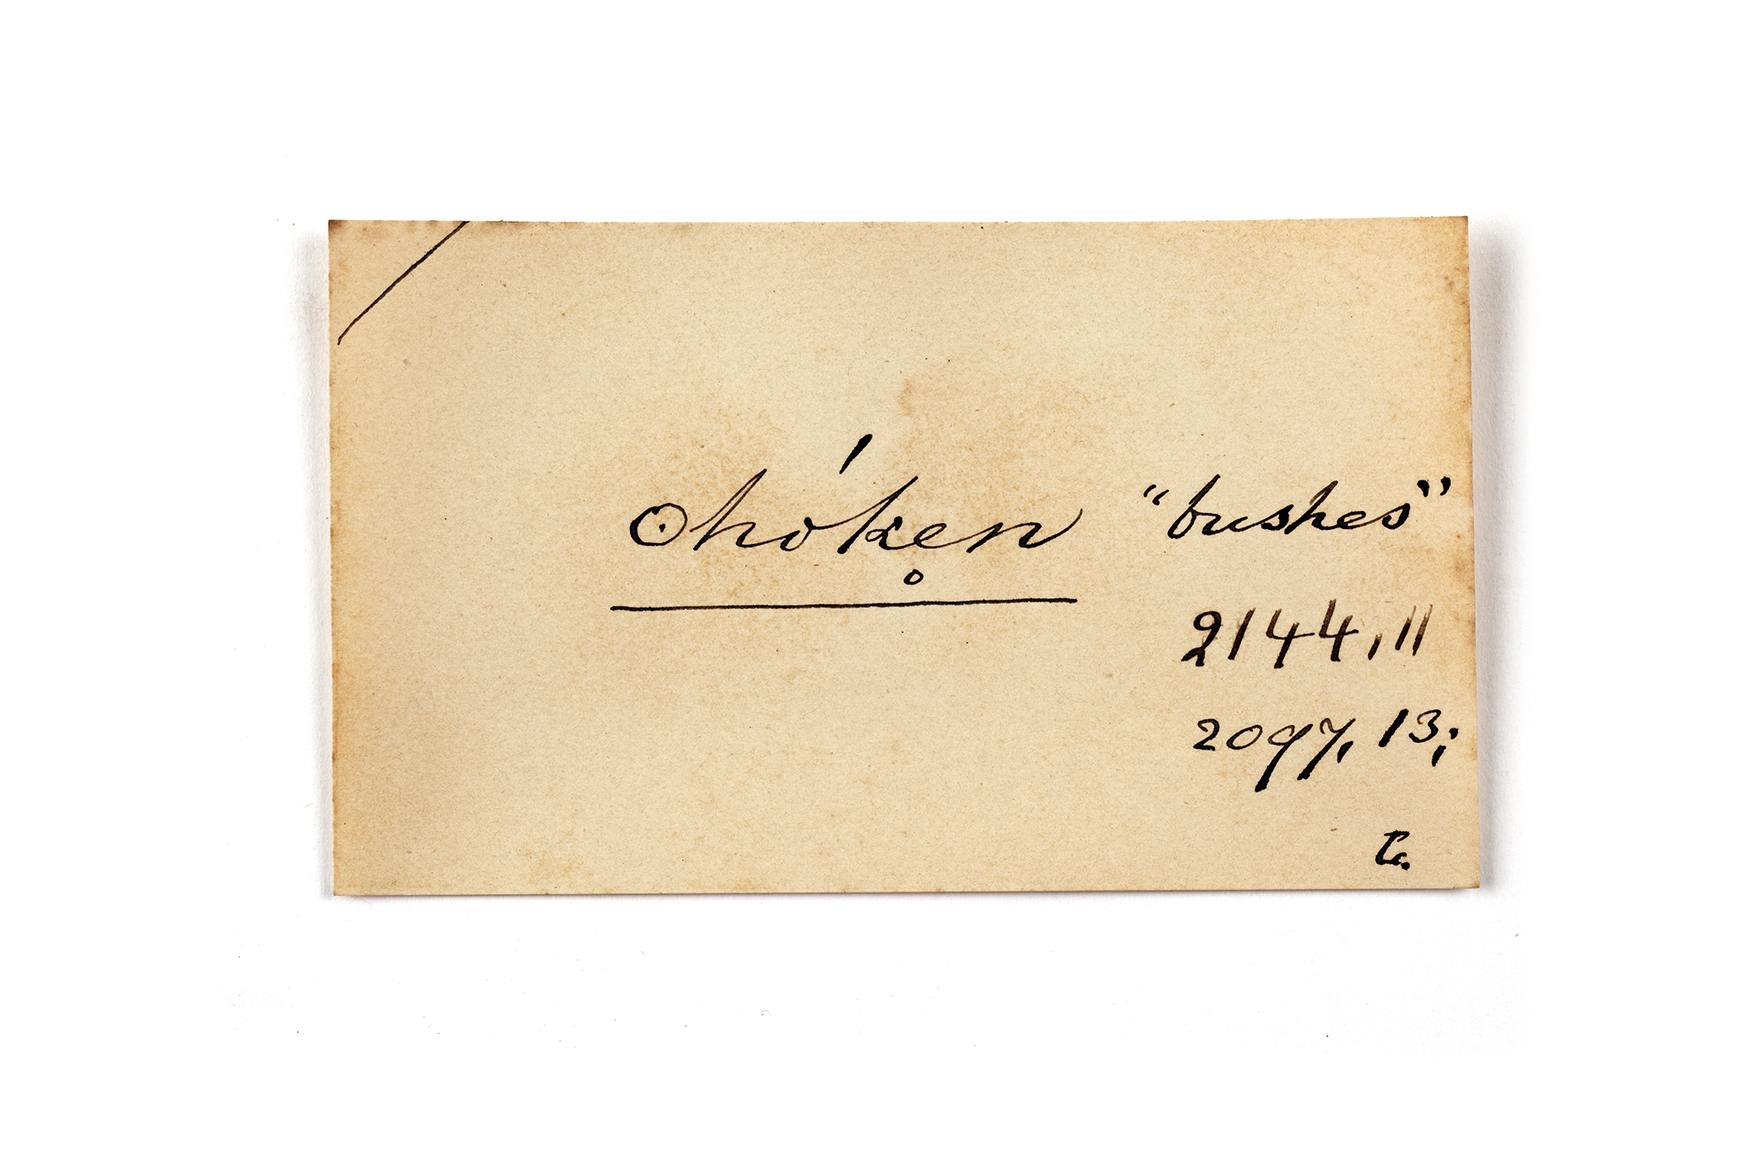 ʘhóke̥n "bushes"
2144, 11
2097, 13;